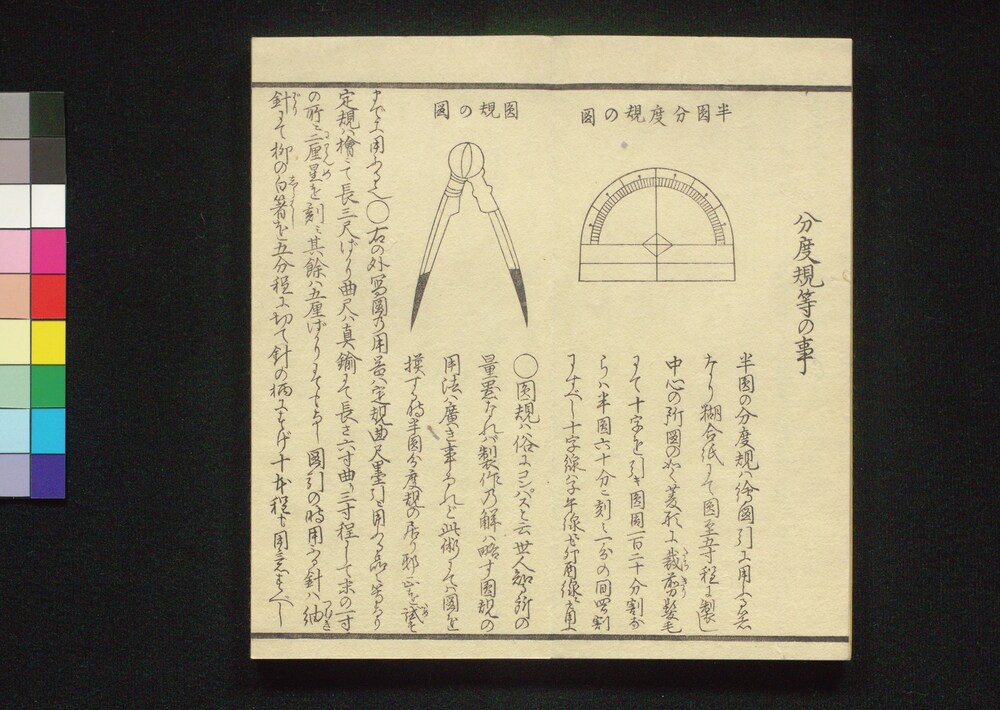 分度規等の事
半圓分度規の圖
半圓の分度規ハ繪圖引に用ふる器
なり糊合紙にて圓徑五寸程に製し
中心の所圖の如く菱形に裁剪髪毛
にて十字を引き圓周一百二十分割な
らハ半圓六十分に刻し一分の間四割
にすべし十字線ハ子午線卯酉線に用ふ
圓規の圖
◯圓規ハ俗にコンパスと云世人知る所の
量器なれバ製作の解ハ略す圓規の
用法ハ廣き事なれど此術にてハ圖を
摸する時半圓分度規の居り邪正を試む
までに用ふる也◯右の外寫圖の用器ハ定規曲尺墨引に用ふる品々等なり
定規ハ檜にて長三尺ばかり曲尺ハ真鍮にて長さ六寸曲り三寸程にして末の一寸
の所に二厘星を刻ミ其餘ハ五厘ばかりにてもよし圖引の時用ふる針ハ紬
針にて柳の白箸を五分程に切て針の柄にすげ十本程も用意すべし